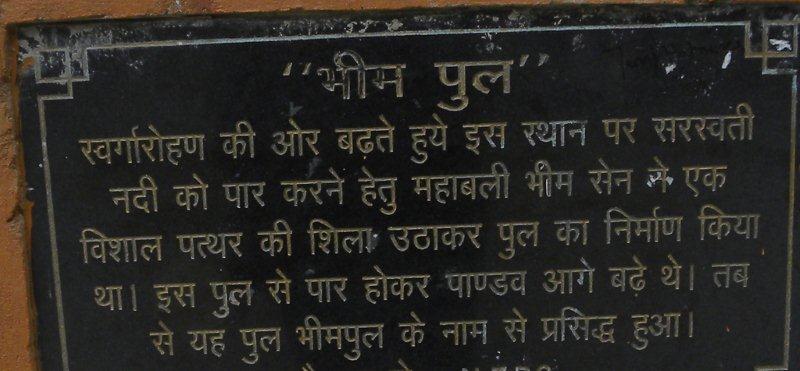 ‘‘भीम पुल’’
स्वर्गारोहण की ओर बढ़ते हुये इस स्थान पर सरस्वती
नदी को पार करने हेतु महाबली भीम सेन ने एक
विशाल पत्थर की शिला उठाकर पुल का निर्माण किया
था। इस पुल से पार होकर पाण्डव आगे बढ़े थे। तब
से यह पुल भीमपुल के नाम से प्रसिद्ध हुआ।